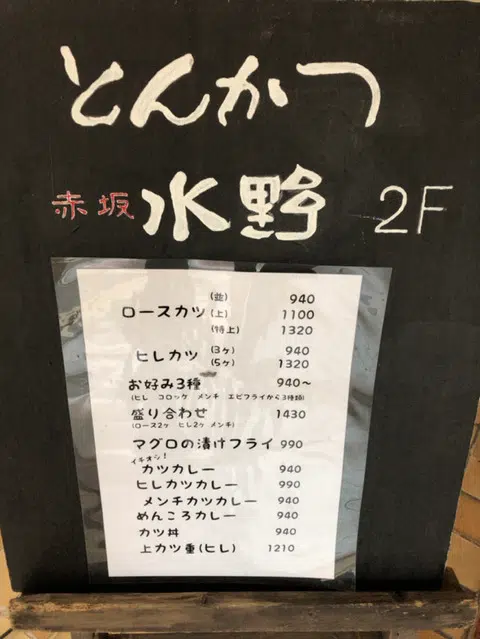 とんかつ
赤坂 水野 2F
ロースカツ (並) 940
(上) 1100
(特上) 1320
ヒレカツ (3ヶ) 940
(5ヶ) 1320
お好み3種 940〜
(ヒレ コロッケ メンチ エビフライから3種類)
盛り合わせ 1430
(ロース2ヶ ヒレ2ヶ メンチ)
マグロの漬けフライ 990
イチオシ!
カツカレー 940
ヒレカツカレー 990
メンチカツカレー 940
めんころカレー 940
カツ丼 940
上カツ重(ヒレ) 1210